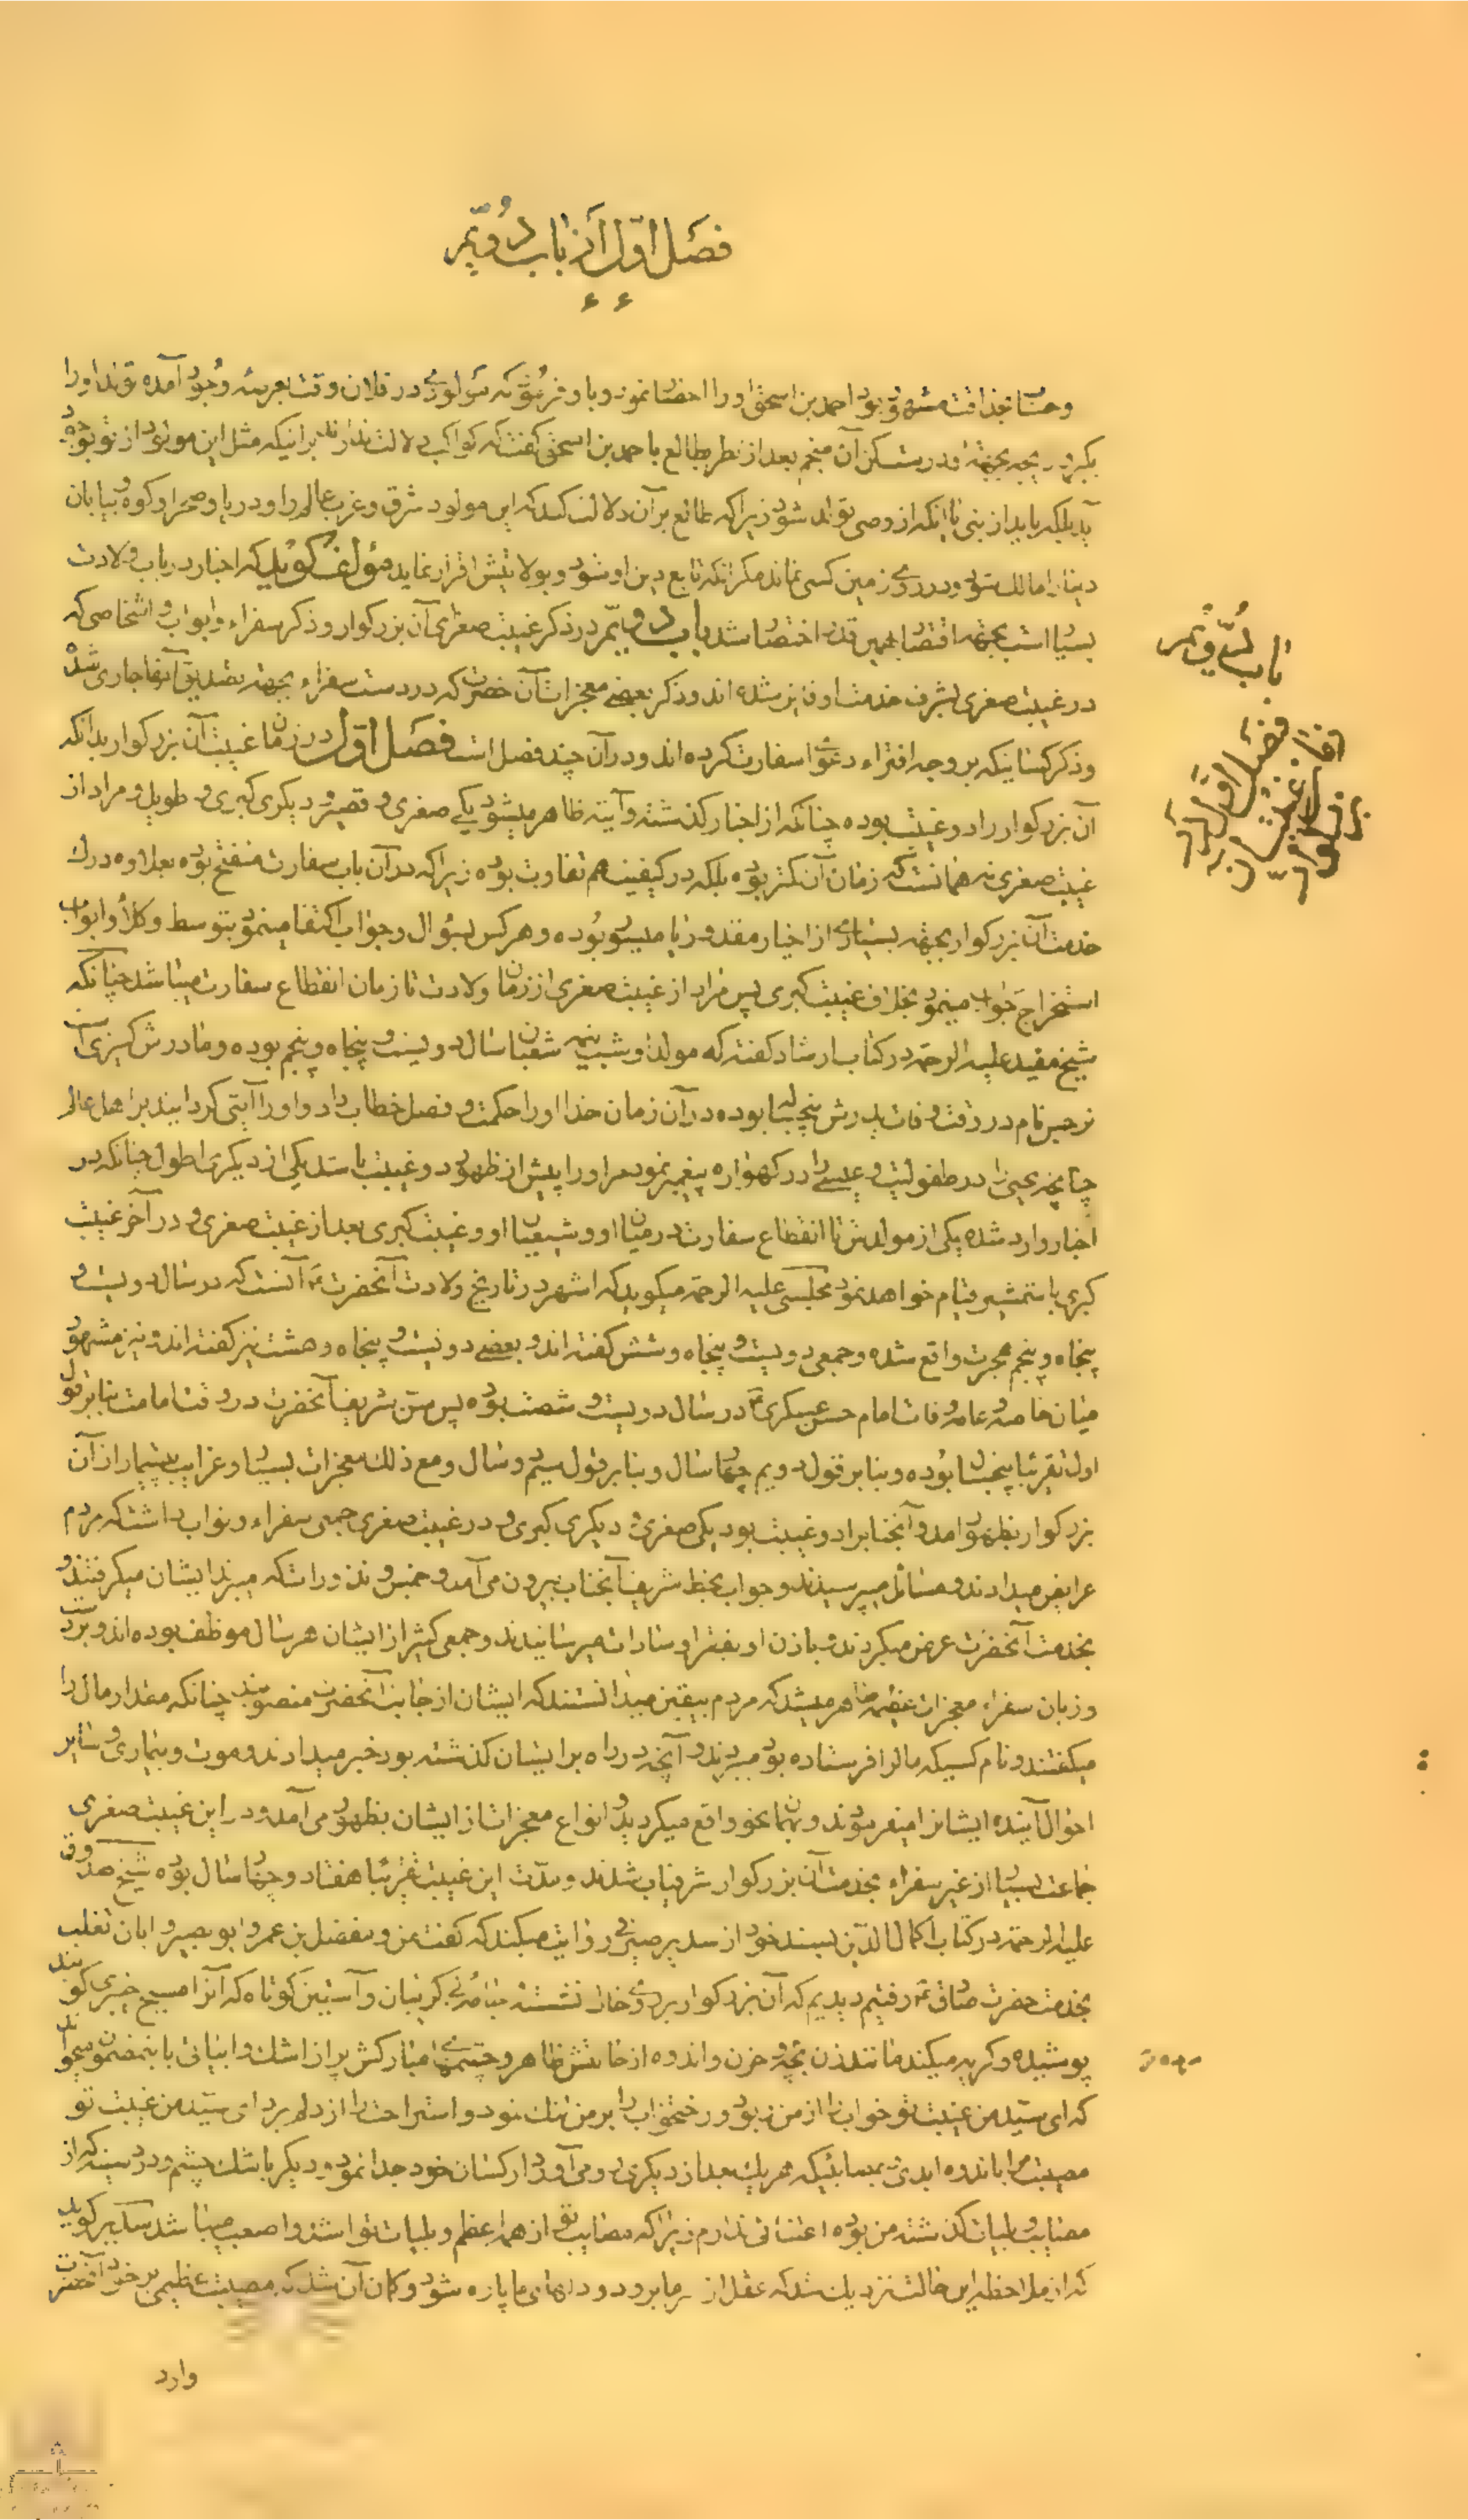 فصل اول از باب دویّم
و حسّا بحذاقت مشهور بود احمد بن اسحق او را احضا نمود و باو فرمود که مولودی در فلان وقت بعرصه وجود آمده تولد او را
بگیر در یچه بجهة او درست کن آن منجم بعد از نظر بطالع باحمد بن اسحق گفت که کواکب دلالت ندارند بر اینکه مثل این مولود از تو بوجود
آید بلکه باید از نبی یا اینکه از وصی تولد شود زیرا که طالع بر آن دلالت کند که این مولود شرق و غرب عالم را و دریا و صحرا و کوه و بیابان
دنیا را مالک شود و در روی زمین کسی نماند مگر انکه تابع دین او شود و بولایتش اقرار نماید مؤلف گوید که اخبار در باب ولادت
بسیا است بجهة اقتصا بهمین قدر اختصا شد باب دویّم در ذکر غیبت صغرای آن بزرگوار و ذکر سفراء و ابواب و اشخاصی که
در غیبت صغری بشرف خدمت او فایز شده اند و ذکر بعضی معجزات آن حضرت که در دست سفراء بجهة تصدیق آنها جاری شده
و ذکر کسانیکه بر وجه افتراء دعوا سفارت کرده اند و در آن چند فصل است فصل اول در زمان غیبت آن بزرگوار بدانکه
آن بزرگوار را دو غیبت بوده چنانکه از اخبار گذشته و آیته ظاهر میشود یکی صغری و قصیر و دیگری کبری و طویل و مراد از
غیبت صغری نه همانست که زمان آن کمتر بوده بلکه در کیفیت هم تفاوت بوده زیرا که در آن باب سفارت منفتح بوده بعلاوه درک
خدمت آن بزرگوار بجهة بسیاری از اخیار مقدور یا میسر بوده و هر کس بسؤال و جواب اکتفا مینمود بتوسط وکلا و ابواب
استخراج جواب مینمود بخلاف غیبت کبری پس مراد از غیبت صغری از زمان ولادت تا زمان انقطاع سفارت میباشد چنانکه
شیخ مفید علیه الرحمه در کتاب ارشاد گفته که مولد او شب نیمه شعبان سال دویست و پنجاه و پنجم بوده و مادرش کنیزی است
نرجس نام در وقت وفات پدرش پنجساله بوده در آن زمان خدا او را حکمت و فصل خطاب داد و او را آیتی گردانید بر اهل عالم
چنانچه یحیی را در طفولیت و عیسی را در گهواره پیغمبر نمود مر او را پیش از ظهور دو غیبت باشد یکی از دیگری اطول چنانکه در
اخبار وارد شده یکی از مولدش تا انقطاع سفارت در میان او و شیعیان او و غیبت کبری بعد از غیبت صغری و در آخر غیبت
کبری با شمشیر قیام خواهد نمود مجلسی علیه الرحمه میگوید که اشهر در تاریخ ولادت آنحضرت آنست که در سال دویست و
پنجاه و پنجم هجرت واقع شده و جمعی دویست و پنجاه و شش گفته اند و بعضی دویست و پنجاه و هشت نیز گفته اند و نیز مشهور
میان خاصه و عامه وفات امام حسن عسکری در سال دویست و شصت بوده پس سن شریف آنحضرت در وقت امامت بنا بر قول
اول تقریبا پنجسال بوده و بنا بر قول دویم چهار سال و بنا بر قول سیّم دو سال و مع ذلک معجزات بسیا و غرایب بیشمار از آن
بزرگوار بظهور آمد و آنجناب را دو غیبت بود یکی صغری و دیگری کبری و در غیبت صغری جمعی سفراء و نواب داشت که مردم
عرایض میدادند و مسائل میپرسیدند و جواب بخط شریف آنجناب بیرون می آمد و خمس و نذورات که میبردند ایشان میگرفتند و
بخدمت آنحضرت عرض میکردند و باذن او بفقرا و سادات میرسانیدند و جمعی کثیر از ایشان هر سال موظف بوده اند و بر دست
و زبان سفراء معجزات عظیمه ظاهر میشد که مردم بیقین میدانستند که ایشان از جانب آنحضرت منصوبند چنانکه مقدار مال را
میگفتند و نام کسیکه مال را فرستاده بود میبردند و آنچه در راه بر ایشان گذشته بود خبر میدادند و موت و بیماری و سایر
احوال آینده ایشان را میفرمودند و بهمان نحو واقع میگردید و انواع معجزات از ایشان بظهور می آمد و در این غیبت صغری
جماعت بسیا از غیر سفراء بخدمت آن بزرگوار شرفیاب شدند و مدّت این غیبت تقریبا هفتاد و چهار سال بوده شیخ صدوق
علیه الرحمه در کتاب اکمال الدین بسند خود از سدیر صیرفی روایت میکند که گفت من و مفضل بن عمر و ابو بصیر و ابان تغلب
بخدمت حضرت صادق رفتیم دیدیم که آن بزرگوار بر روی خاک نشسته جامه بی گریبان و آستین کوتاه که آنرا مسیح خیبری گویند
پوشیده و گریه میکند مانند زن بچه مرده و حزن و اندوه از حالتش ظاهر و چشمهای مبارکش پر از اشک و ابیاتی باینمضمون میخواند
که ای سیّد من غیبت تو خواب را از من ربود و رختخواب را بر من تنک نمود و استراحت را از دلم برد ای سیّد من غیبت تو
مصیبت مرا باندوه ابدی بمصایبیکه هر یک بعد از دیگری رو می آورد از کسان خود جدا نمود و دیگر باشک چشم و درد سینه که از
مصایب و بلیات گذشته من بوده اعتنائی ندارم زیرا که مصایب تو از همه اعظم و بلیات تو اشد و اصعب میباشد سدیر گوید
که از ملاحظه این حالت نزدیک شد که عقل از سر ما برود و دلهای ما پاره شود و گمان آن شد که مصیبت عظیمی بر خود آنحضرت
وارد
باب دویّم
فصل اول در
زمان غیبت آن
بزرگوار